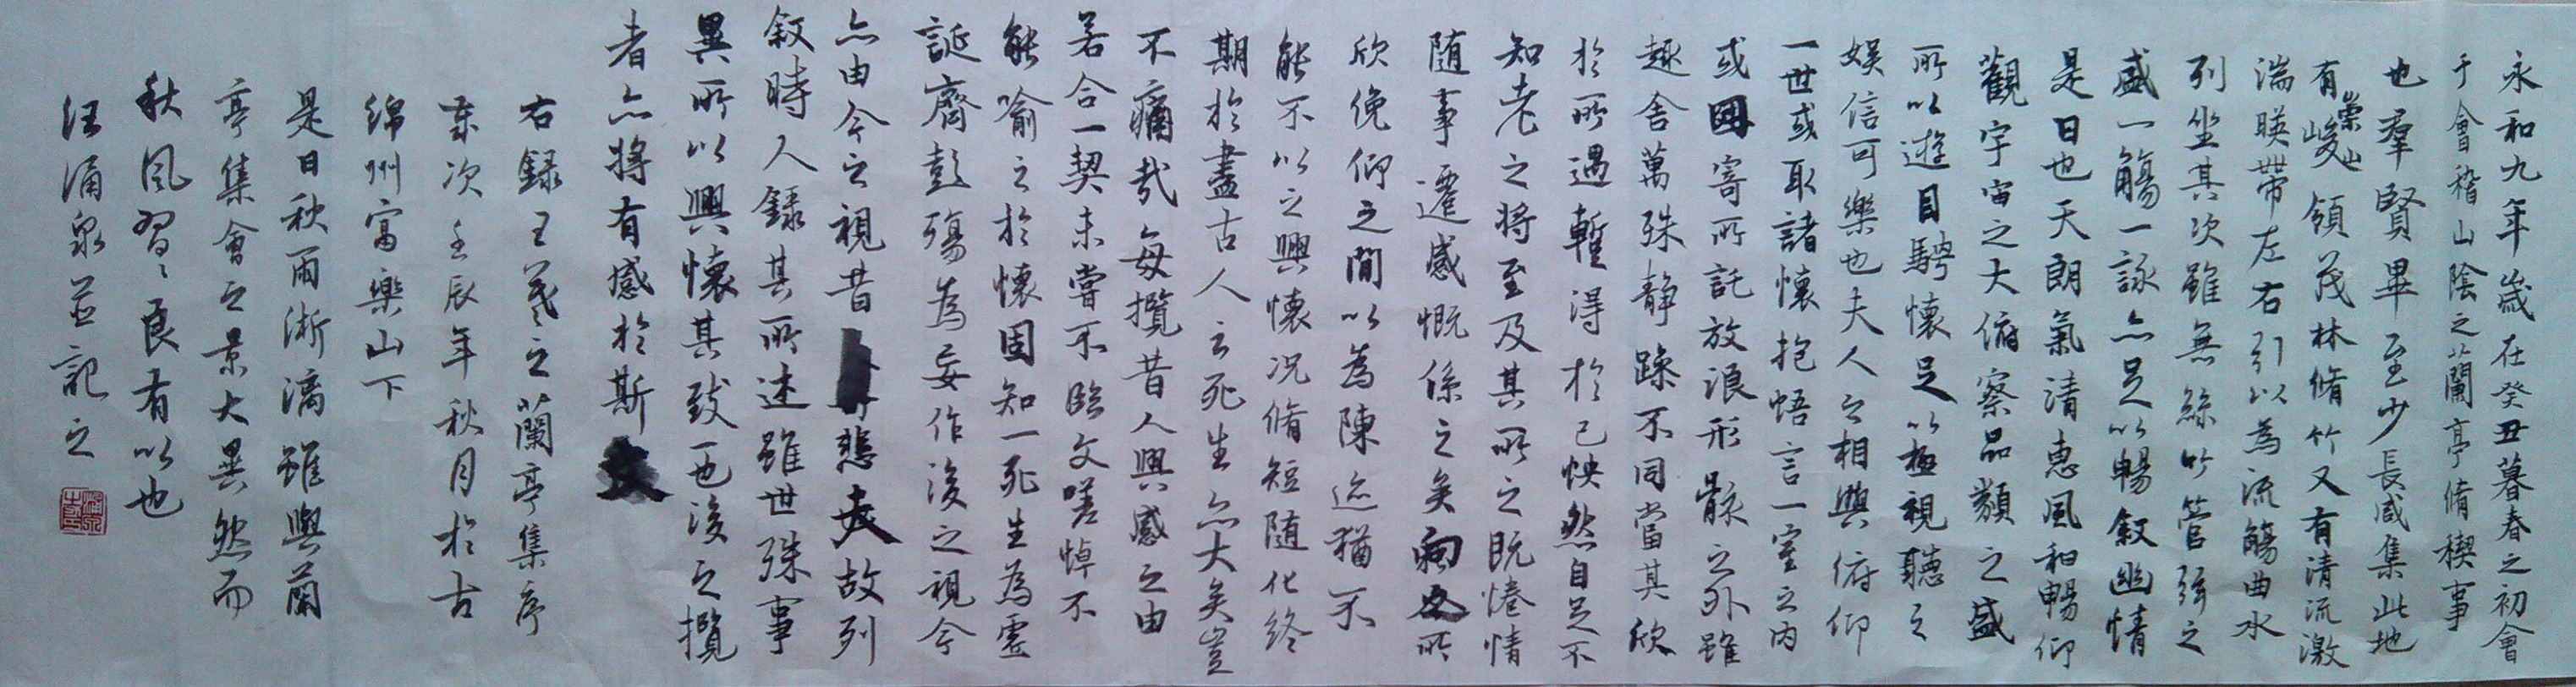 永和九年歲在癸丑暮春之初會
于會稽山陰之蘭亭脩稧事
也羣賢畢至少長咸集此地
有崇山峻領茂林脩竹又有清流激
湍暎帶左右引以為流觴曲水
列坐其次雖無絲竹管弦之
盛一觴一詠亦足以暢敘幽情
是日也天朗氣清惠風和暢仰
觀宇宙之大俯察品類之盛
所以遊目騁懷足以極視聽之
娛信可樂也夫人之相與俯仰
一世或取諸懷抱悟言一室之內
或因寄所託放浪形骸之外雖
趣舍萬殊静躁不同當其欣
於所遇蹔得於己怏然自足不
知老之將至及其所之既惓情
隨事遷感慨係之矣向之所
欣俛仰之間以為陳迹猶不
能不以之興懷況脩短隨化終
期於盡古人云死生亦大矣豈
不痛哉每攬昔人興感之由
若合一契未嘗不臨文嗟悼不
能喻之於懷固知一死生為虛
誕齊彭殤為妄作後之視今
亦由今之視昔悲夫故列
敘時人錄其所述雖世殊事
異所以興懷其致一也後之攬
者亦將有感於斯文
右録王羲之蘭亭集序
歲次壬辰年秋月於古
綿州富樂山下
是日秋雨淅漓雖與蘭
亭集會之景大異然而
秋風習習良有以也
汪涌泉並記之